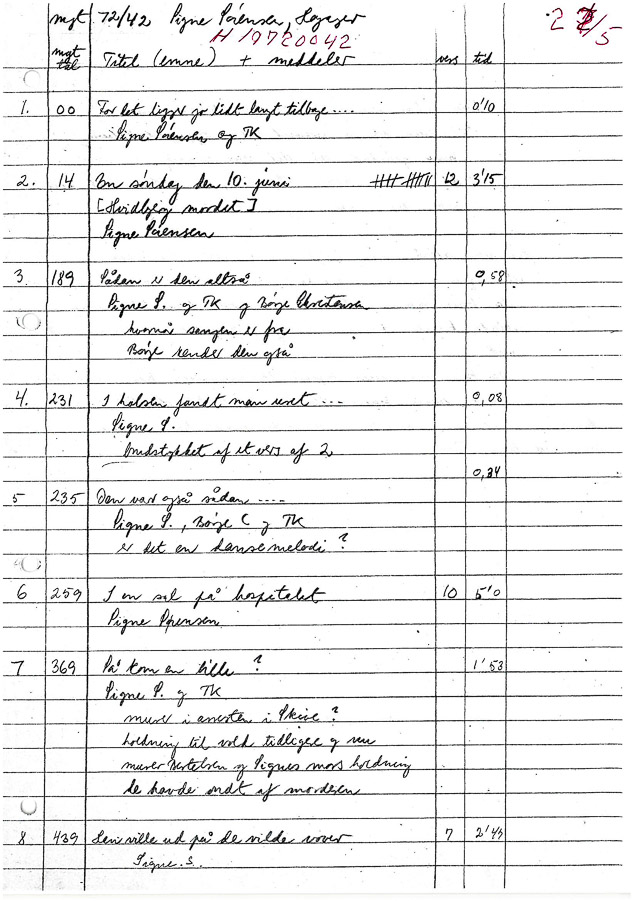 mgt 72/42 Signe Sørensen,
H 19720042
mgt tal Titel (emne) + meddeler vers tid
1. 00 For det ligger jo lidt langt tilbage .... 0'10
Signe Sørensen og TK
2. 14 En søndag den 10. juni 12 3'15
[Hvidbjerg mordet]
Signe Sørensen
3. 189 Sådan er den altså 0,58
Signe S. og TK og Børje Christensen
hvornå sangen er fra
Børje kender den også
4. 231 I halsen fandt man revet ... 0,08
Signe S.
Midstykket af et vers af 2
0,34
5 235 Den var også sådan ....
Signe S., Børje C og TK
er det en dansemelodi?
6 259 I en sal på hospitalet 10 5'0
Signe Sørensen
7 369 Så kom en lille ? 1'53
Signe S. og TK
murer i arresten i Skive?
holdning til vold tidligere og nu
murer Bertelsen og Signes mors holdning
de havde ondt af morderen
8 439 Leni ville ud på de vilde vover 7 2'49
Signe. S.